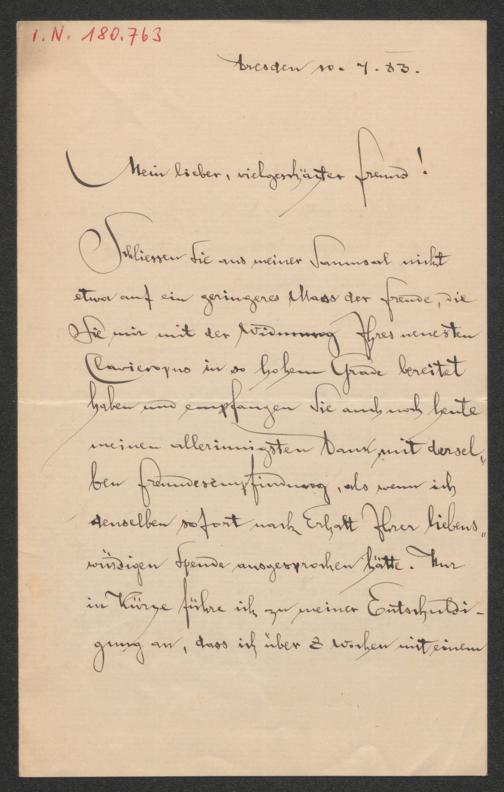 I.N. 180.763
Dresden 10. 7. 83.
Mein lieber, vielgeschäzter Freund!
Schliessen Sie aus meiner Saumsal nicht
etwa auf ein geringeres Mass der Freude, die
Sie mir mit der Widmung Ihres neuesten
Clavieropus in so hohem Grade bereitet
haben und empfangen Sie auch noch heute
meinen allerinnigsten Dank mit dersel„
ben Freundesempfindung, als wenn ich
denselben sofort nach Erhalt Ihrer liebens„
würdigen Spende ausgesprochen hätte. Nur
in Kürze führe ich zu meiner Entschuldi-
gung an, dass ich über 2 Wochen mit einem